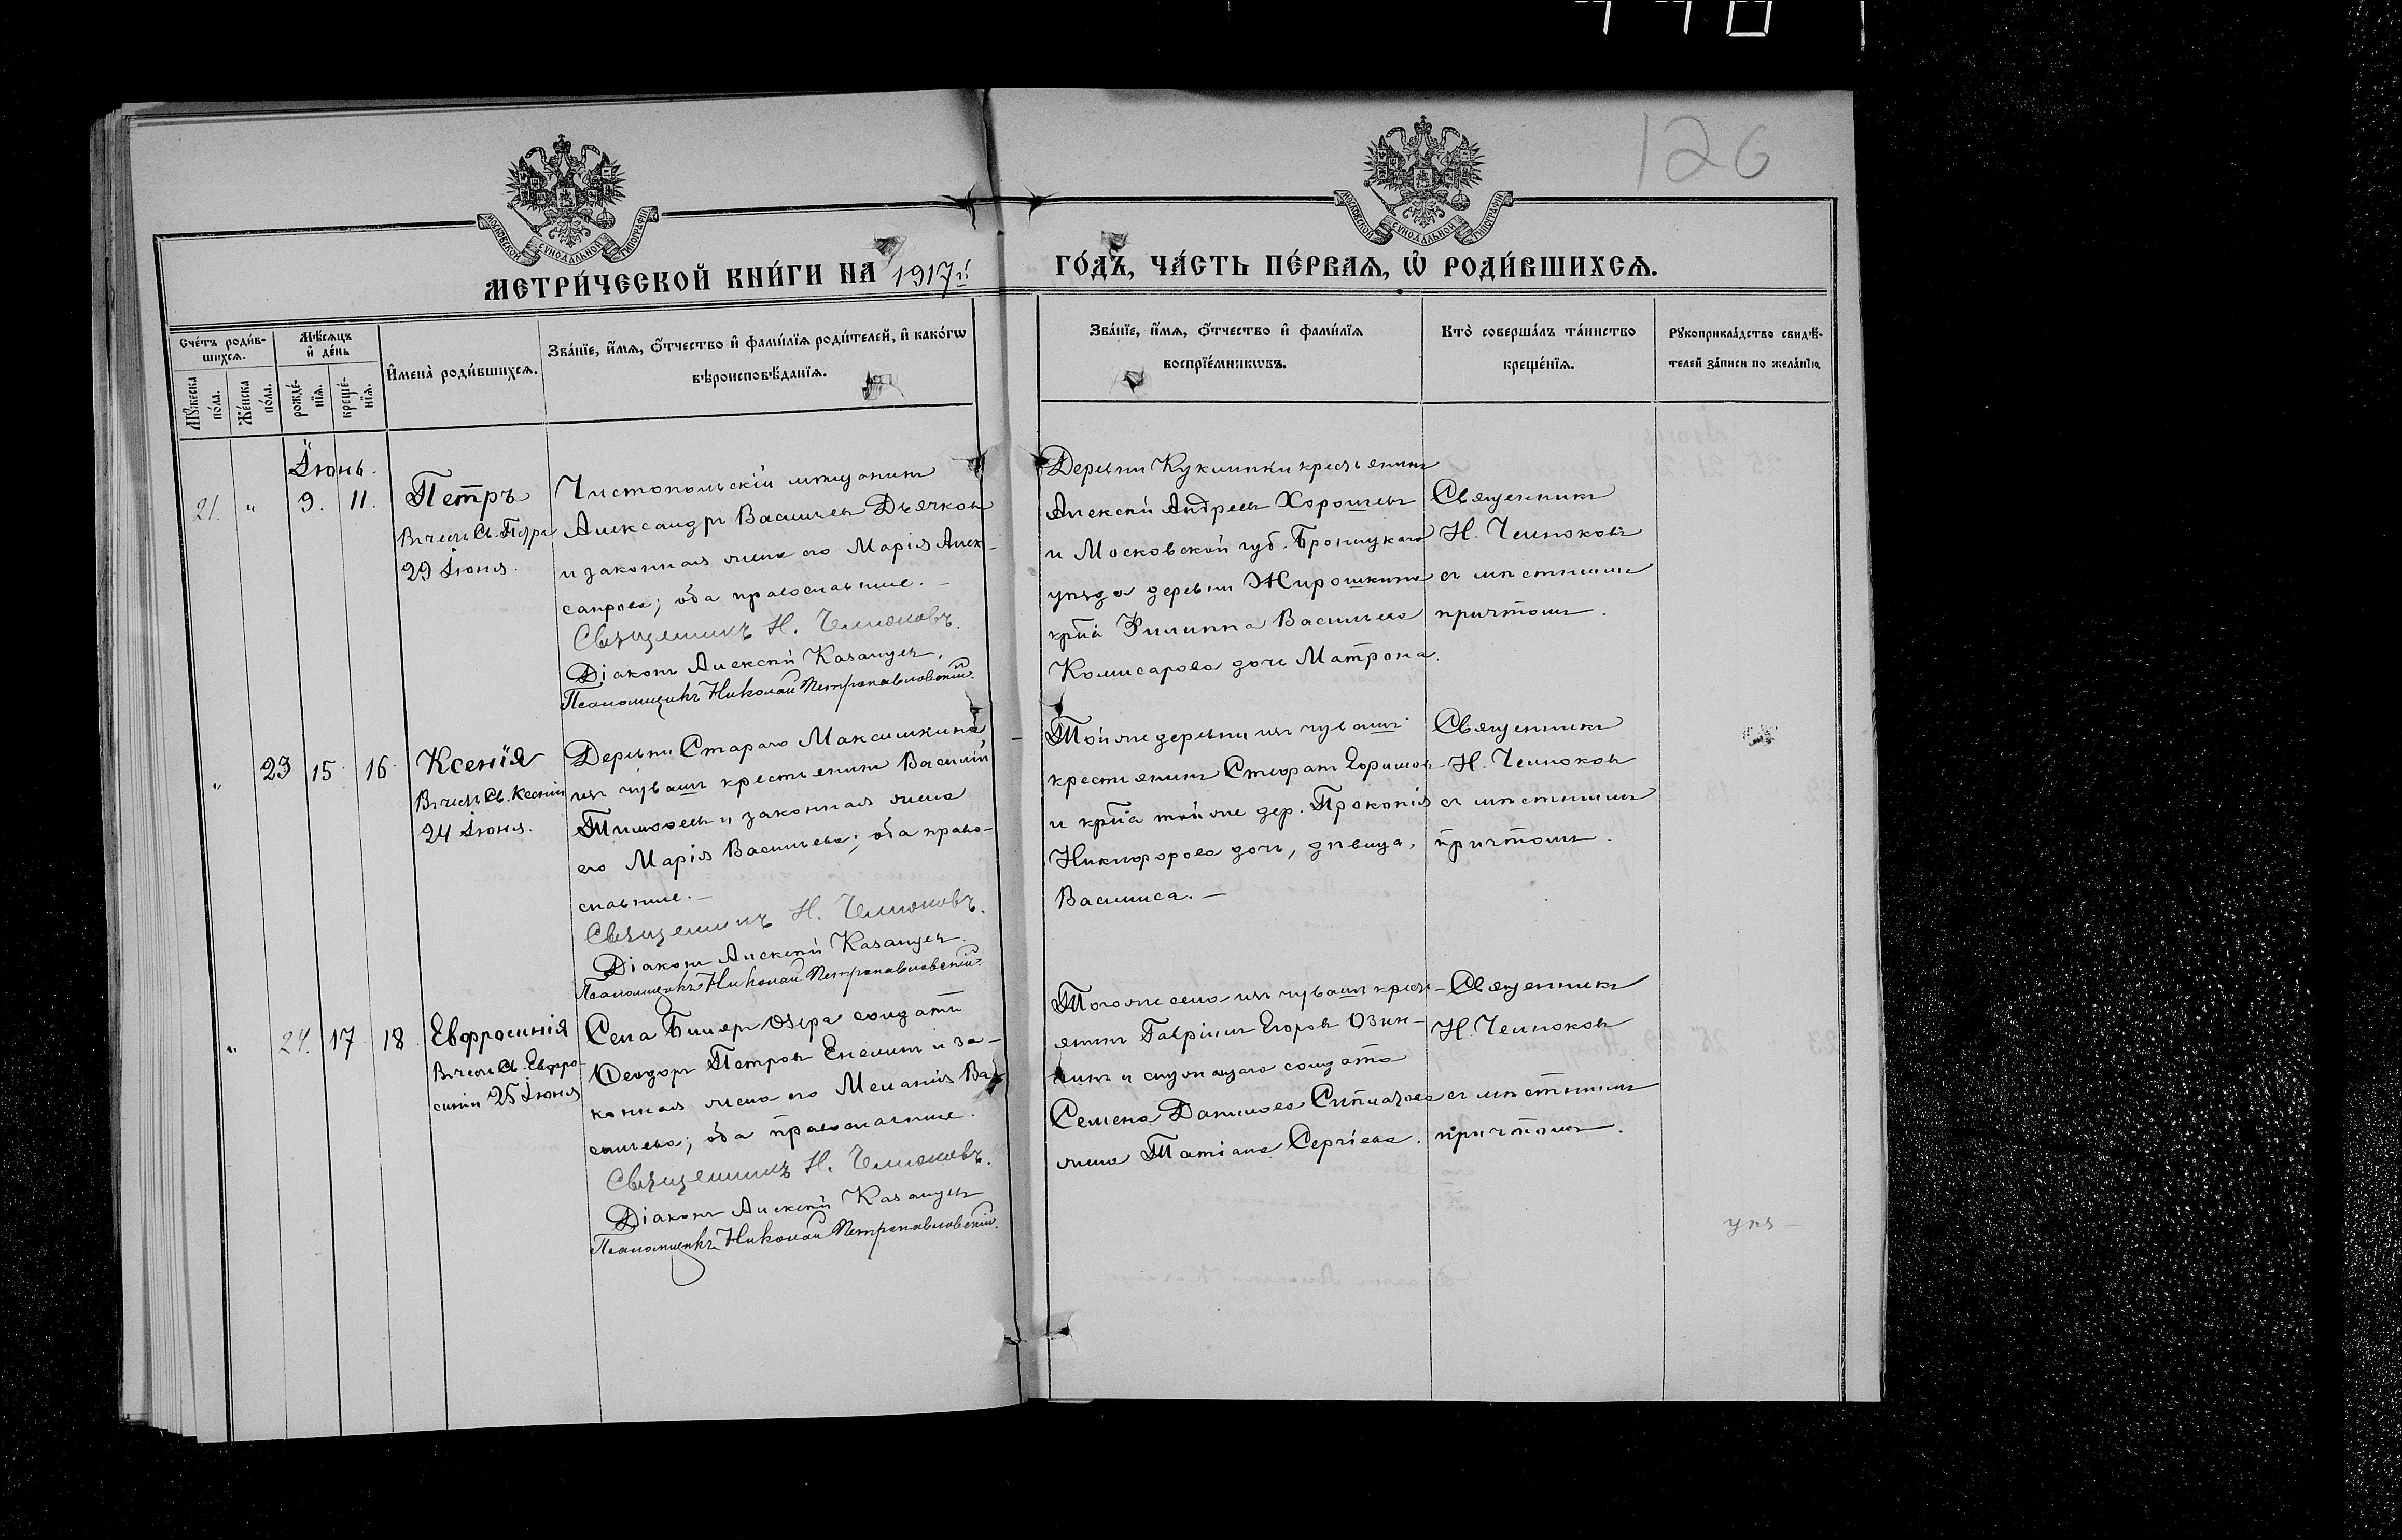 126
МОСКОВСКОЙ СУНОДАЛЬНОЙ ТИПОГРАФІИ
МОСКОВСКОЙ СУНОДАЛЬНОЙ ТИПОГРАФІИ
МЕТРИ́ЧЕСКОЙ КНИ́ГИ НА 1917 г.
ГО́ДЪ, ЧА́СТЬ ПЕ́РВАѦ, Ѡ РОДИ́ВШИХСѦ.
Сче́тъ роди́в-
шихсѧ.
Мѣ́сѧцъ
и҆ де́нь
Мꙋ́жеска
по́ла.
Же́нска
по́ла.
рожде́-
нїѧ.
креще́-
нїѧ.
И҆мена̀ роди́вшихсѧ.
Зва́нїе, и҆́мѧ, ѻ҆́тчество и҆ фами́лїѧ роди́телей, и҆ како́гѡ
вѣроисповѣ́данїѧ.
Зва́нїе, и҆́мѧ, ѻ҆́тчество и҆ фами́лїѧ
воспрїе́мникѡвъ.
Кто̀ соверша́лъ та́инство
креще́нїѧ.
Рꙋкоприкла́дство свидѣ́-
телей за́писи по жела́нїю.
Іюнь.
21. " 9. 11.
Петръ
Въ честь Св. Петра
29 Іюня.
Чистопольскій мѣщанинъ
Александръ Васильевъ Дьячковъ
и законная жена его Марія Алек-
сандрова; оба православные. —
Священникъ Н. Чемоковъ.
Діаконъ Алексѣй Казанцевъ.
Псаломщикъ Николай Петропавловскій.
Деревни Куклинки крестьянинъ
Алексѣй Андреевъ Хорошевъ
и Московской губ. Бронницкаго
уѣзда деревни Жирошкина
кр-на Филиппа Васильева
Комисарова дочь Матрона.
Священникъ
Н. Чемоковъ
съ мѣстнымъ
причтомъ.
" 23 15 16
Ксенія
Въ честь Св. Ксеніи
24 Іюня.
Деревни Стараго Максимкина
изъ чувашъ крестьянинъ Василій
Тимоѳеевъ и законная жена
его Марія Васильева; оба право-
славные. —
Священникъ Н. Чемоковъ.
Діаконъ Алексѣй Казанцевъ.
Псаломщикъ Николай Петропавловскій.
Той же деревни изъ чувашъ
крестьянинъ
и кр-на той же дер. Прокопія
Никифорова дочь, дѣвица,
Василиса. —
Священникъ
Н. Чемоковъ
съ мѣстнымъ
причтомъ.
" 24. 17 18
Евфросинія
Въ честь Св. Евфро-
синіи 25 Іюня
Села Биляръ Озера солдатъ
Ѳеодоръ Петровъ и за-
конная жена его Меланія Ва-
сильева; оба православные.
Священникъ Н. Чемоковъ.
Діаконъ Алексѣй Казанцевъ
Псаломщикъ Николай Петропавловскій.
Того же села изъ чувашъ кресть-
янинъ Гавріилъ Егоровъ
и солдата
Семена Данилова
жена Татіана Сергіева.
Священникъ
Н. Чемоковъ
съ мѣстнымъ
причтомъ.